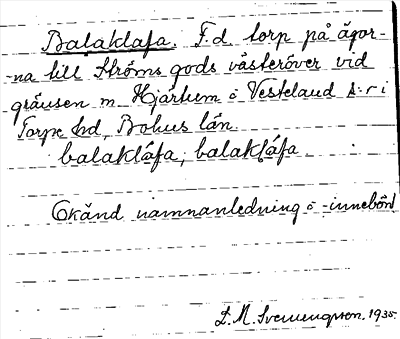 Balaklafa. F.d. torp på ägor-
-na till Ströms gods västeröver vid
gränsen m. Hjärtum o Vesteland s:r i
Torpe hd, Bohus län.
balaklåfa, balaklåfa
Okänd namnanledning o -innebörd